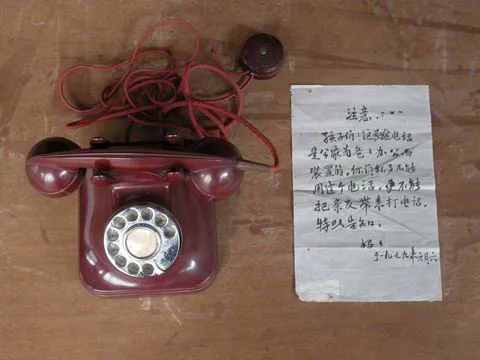 注意……
孩子们：这是途电话
是公家为爸爸办公而
装置的，你们私事不能
用这个电话，更不能
把亲友带来打电话。
特此告知。
妈妈
于一九七九年六月六